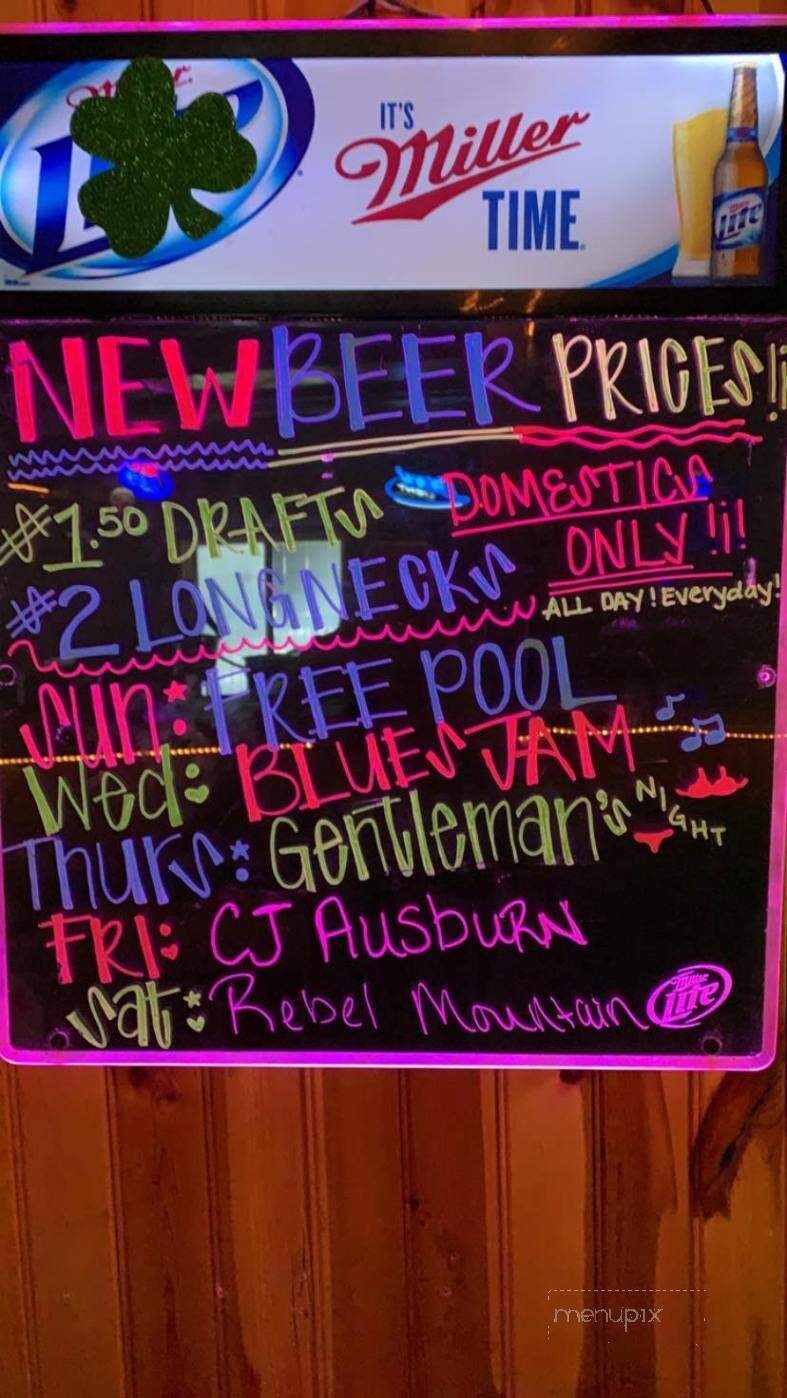 Miller
IT'S
Miller
TIME
Lite
NEW BEER PRICES!¡
$1.50 DRAFTS
DOMESTICS
ONLY !¡!
$2 LONGNECKS
ALL DAY! Everyday!
Sun: FREE POOL
Wed: BLUES JAM
Thurs: Gentleman's NIGHT
FRI: CJ AusbuRN
Sat: Rebel Mountain
Miller
Lite
menupix